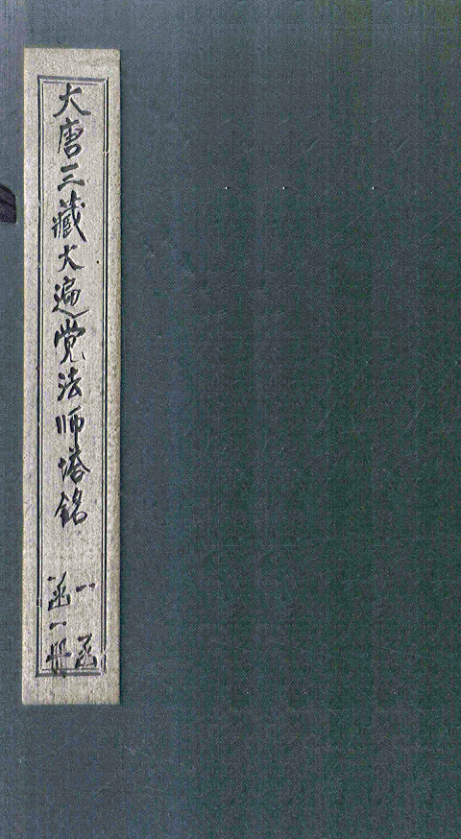 大唐三藏大遍觉法师塔銘
一函
函一冊